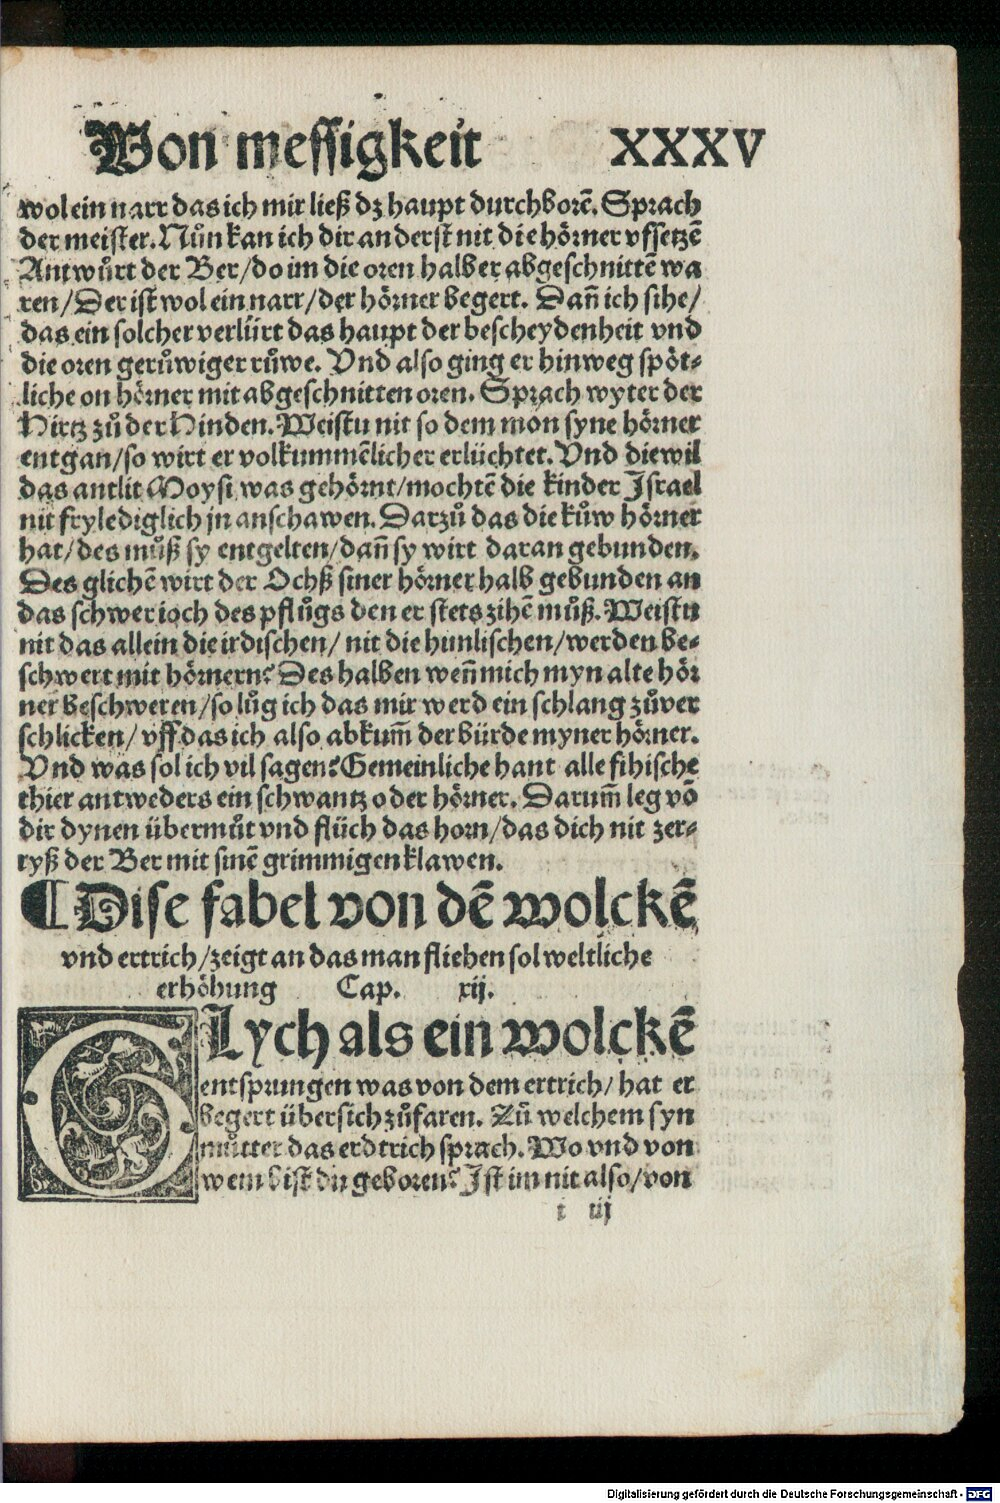 Von messigkeit XXXV
wol ein narr das ich mir ließ dz haupt durchborē. Sprach
der meister. Nůn kan ich dir anderst nit die hörner vffsetzē
Antwůrt der Ber / do im die oren halb er abgeschnittē wa
ren / Der ist wol ein narr / der hörner begert. Dañ ich sihe /
das ein solcher verlürt das haupt der bescheydenheit vnd
die oren gerůwiger růwe. Vnd also ging er hinweg spöt⸗
liche on hörner mit abgeschnitten oren. Sprach wyter der
Hirtz zů der Hinden. Weistu nit so dem mon syne hörner
entgan / so wirt er volkummēlicher erlüchtet. Vnd diewil
das antlit Moysi was gehörnt / mochtē die kinder Israel
nit fryledigli​ch jn anschawen. Darzů das die kůw hörner
hat / des můß sy entgelten / dañ sy wirt daran gebunden.
Des glichē wirt der Ochß siner hörner halb gebunden an
das schwer ioch des pflůgs den er stets zihē můß. Weistu
nit das allein die irdischen / nit die himlischen / werden be⸗
schwert mit hörnern? Des halben weñ mich myn alte hör
ner beschweren / so lůg ich das mir werd ein schlang zůver
schlicken / vff das ich also abkum̄ der bürde myner hörner.
Vnd was sol ich vil sagen? Gemeinliche hant alle fihische
thier antweders ein schwantz oder hörner. Darum̄ leg vō
dir dynen übermůt vnd flüch das horn / das dich nit zer⸗
ryß der Ber mit sinē grimmigen klawen.
¶ Dise fabel von dē wolckē
vnd ertrich / zeigt an das man fliehen sol weltliche
erhöhung Cap. xij.
GLych als ein wolckē
entsprungen was von dem ertrich / hat er
begert übersich zůfaren. Zů welchem syn
můtter das erdtrich sprach. Wo vnd von
wem bist du geboren? Ist im nit also / von
i iij
Digitalisierung gefördert durch die Deutsche Forschungsgemeinschaft - DFG